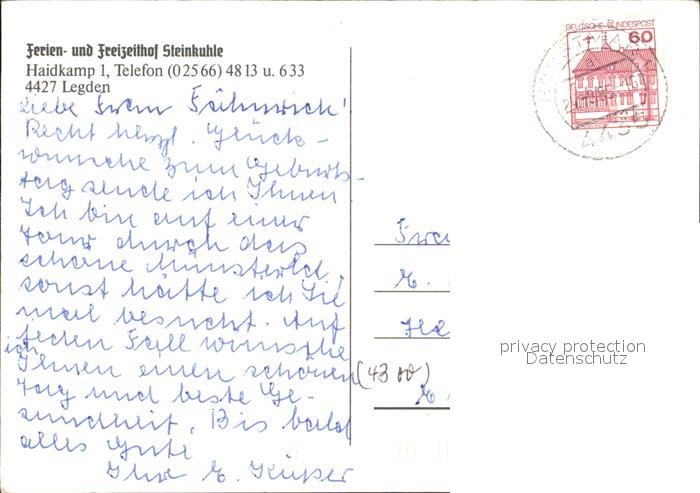 Ferien- und Freizeithof Steinkuhle
Haidkamp 1, Telefon (02566) 4813 u. 633
4427 Legden
Liebe Frau Fähnrich!
Recht herzl. Glück-
wünsche zum Geburts-
tag sende ich Ihnen
Ich bin auf einer
Tour durch das
schöne Münsterld.
sonst hätte ich Sie
mal besucht. Auf
jeden Fall wünsche
ich
Ihnen einen schönen
Tag und beste Ge-
sundheit. Bis bald
alles Gute
Ihre E.
DEUTSCHE BUNDESPOST
60
Frau
E.
(4300)
E
privacy protection
Datenschutz